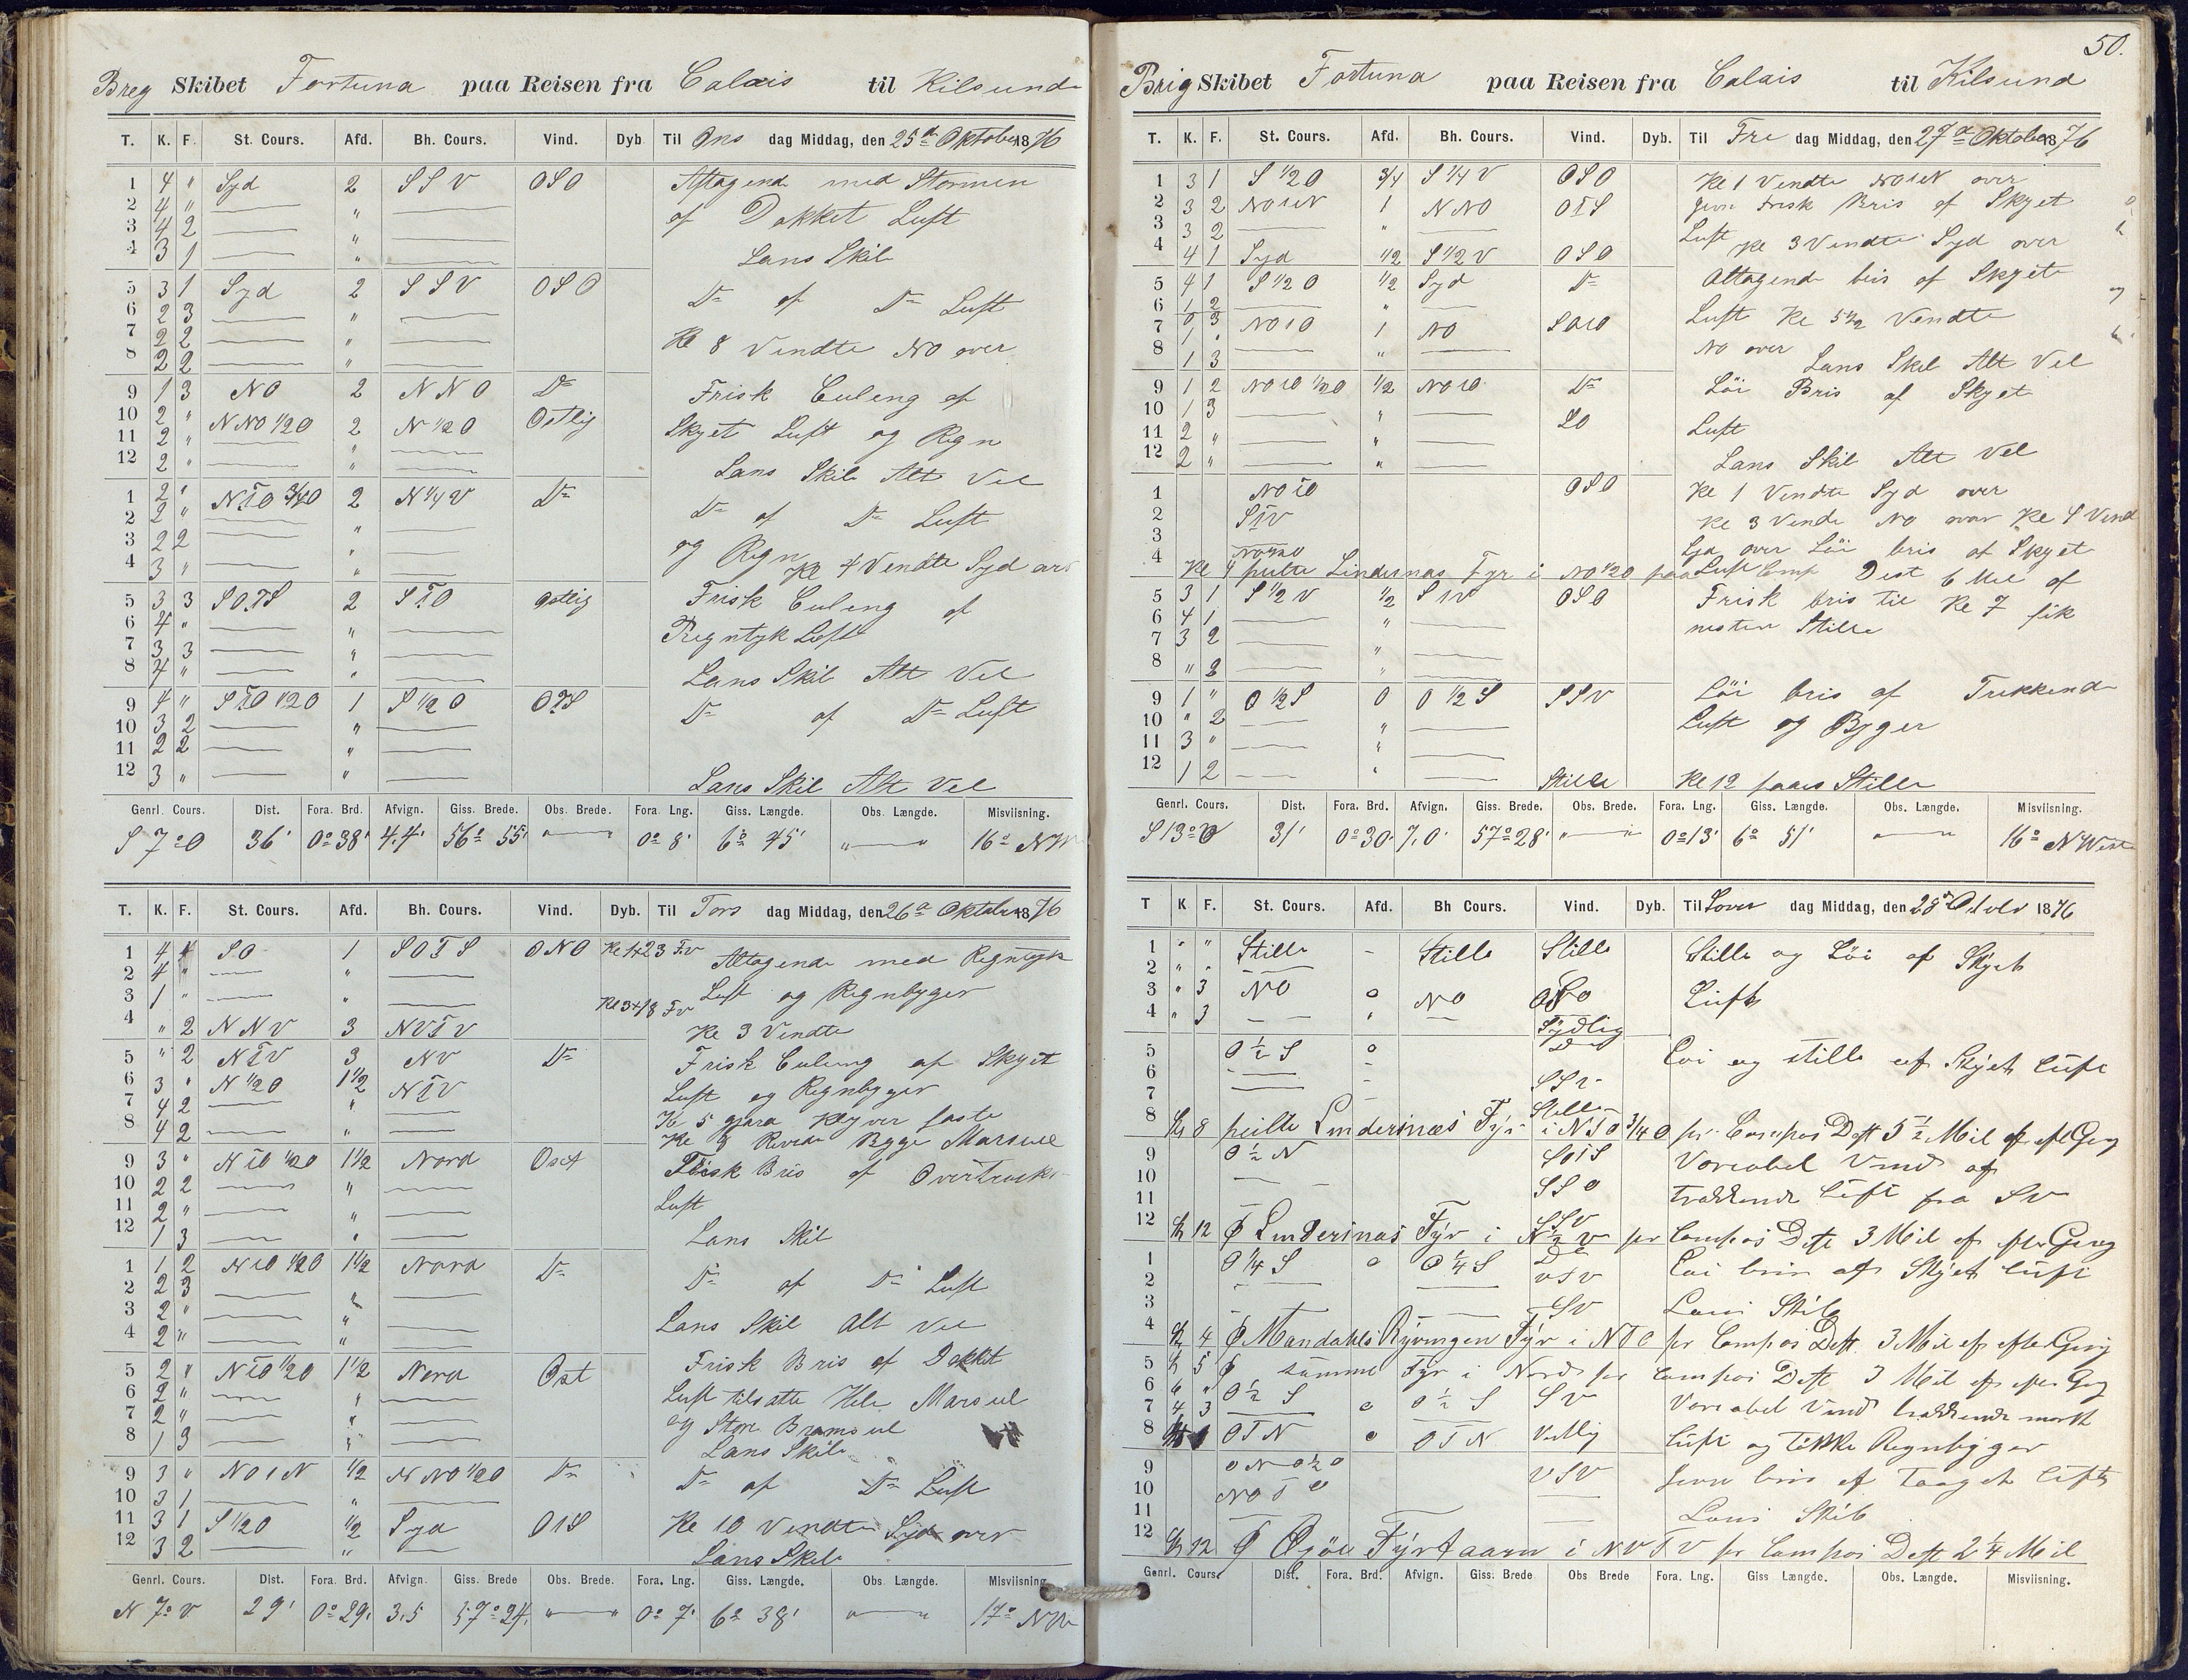 Breg Skibet Fortuna paa Reisen fra Calais til Kilsund
T. K. F. St. Cours. Afd. Bh. Cours. Vind. Dyb Til Ons dag Middag, den 25d Oktober 1876
1 4 " Syd 2 SSV OSO Aftagende med Stormen
2 4 " " af Dakket Luft
3 4 2 "
4 3 1 " Lans Skib
5 3 1 Syd 2 SSV OSO Do af Do Luft
6 2 3 "
7 2 2 " Kl 8 Vendte NO over
8 2 2 "
9 1 3 NO 2 NNO Do Frisk Culeng af
10 2 " NNO 1/2 O 2 N 1/2 O Ostlig Skyet Luft og Regn
11 2 " "
12 2 " " Lans Skib Alt Vel
1 2 " NTO 3/4 O 2 N 1/4 V Do Do af Do Luft
2 2 " "
3 2 2 " og Regn
4 3 " " Kl 4 Vendte Syd
5 3 3 SOTS 2 STO Ostlig Frisk Culeng af
6 4 " " Regntyk Luft
7 3 3 "
8 4 " " Lans Skib Alt Vel
9 4 " STO 1/2 O 1 S 1/2 O OTS Do af Do Luft
10 3 2 "
11 2 2 "
12 3 " " Lans Skib Alt Vel
Genrl. Cours. Dist. Fora. Brd. Afvign. Giss. Brede. Obs. Brede. Fora. Lng. Giss. Længde. Obs. Længde. Misviisning.
S 7° O 36' 0° 38' 4.4' 56° 55' " " 0° 8' 6° 45' " " 16° NW
T. K. F. St. Cours. Afd. Bh. Cours. Vind. Dyb. Til Tors dag Middag, den 26d Oktober 1876
1 4 4 SO 1 SOTS ONO Kl 1 + 23 Fv Altagende med Regntyk
2 4 " "
3 1 " " Kl 3 + 18 Fv Luft og Regnbyger
4 " 2 NNV 3 NVTV Kl 3 Vendte
5 " 2 NTV 3 NV Do Frisk Culeng af Skyet
6 3 " N 1/2 O 1 1/2 NTV Luft og Regnbyger
7 4 2 " Kl 5 gjøra Klyver faste
8 4 2 " Kl 8 Bygge Marseil
9 3 " NTO 1/2 O 1 1/2 Nord Ost Frisk Bris af
10 2 2 " Luft
11 2 " "
12 1 3 " Lans Skib
1 1 2 NTO 1/2 O 1 1/2 Nord Do Do af Do Luft
2 2 3 "
3 2 " " Lans Skib Alt Vel
4 2 " "
5 2 " NTO 1/2 O 1 1/2 Nord Ost Frisk Bris af Dakkit
6 2 " " Luft tilsatte Hele Marsul
7 2 " " og Store Bramsul
8 1 3 " Lans Skib
9 3 " NOTN 1/2 NNO 1/2 O Do Do af Do Luft
10 3 1 "
11 3 1 S 1/2 O 1/2 Syd OTS Kl 10 Vendte Syd over
12 3 2 " Lans Skib
Genrl. Cours. Dist. Fora. Brd. Afvign. Giss. Brede Obs. Brede. Fora. Lng. Giss. Længde. Obs. Længde. Misviisning
N 7° V 29' 0° 29' 3.5 57° 24' " " 0° 7' 6° 38' " " 17° NW
50.
Brig Skibet Fortuna paa Reisen fra Calais til Kilsund
T. K. F. St. Cours. Afd. Bh. Cours. Vind. Dyb. Til Fre dag Middag, den 27d Oktober 1876
1 3 1 S 1/2 O 3/4 S 1/4 V OSO Kl 1 Vendte NOTN over
2 3 2 NOTN 1 NNO OTS Frisk Bris af Skyet
3 3 2 " Luft
4 4 1 Syd 1/2 S 1/2 V OSO Kl 3 Vendte Syd over
5 4 1 S 1/2 O 1/2 Syd Do Altagende bris af Skyet
6 1 2 " Luft Kl 5 1/2 Vendte
7 0 3 NOTO 1 NO SOTO NO over
8 1 3 " Lans Skib Alt Vel
9 1 2 NOTO 1/2 O 1/2 NOTO Do Löi Bris af Skyet
10 1 3 " SO Luft
11 2 " "
12 2 " " Lans Skib Alt Vel
1 NOTO OSO Kl 1 Vendte Syd over
2 STV Kl 3 Vendte NO over Kl 4 Vend
3 Syd over Löi bris af Skyet
4 Kl 4 peilte Lindesnas Fyr i NO 1/2 O paa Comp Dest 6 Mil af
Luft
5 3 1 S 1/2 V 1/2 STV OSO Frisk bris til Kl 7 fik
6 4 1 " nesten Stille
7 3 2 "
8 " 3 "
9 1 " O 1/2 S 0 O 1/2 S SSV Löi bris af Trekkende
10 " 2 " Luft og Byger
11 3 " "
12 1 2 " Stille Kl 12 Stille
Genrl. Cours. Dist. Fora. Brd. Afvign. Giss. Brede. Obs. Brede. Fora. Lng. Giss. Længde. Obs. Længde. Misviisning.
S 13° O 31' 0° 30' 7,0' 57° 28' " " 0° 13' 6° 51' " " 16° NWest
T K F. St. Cours. Afd. Bh Cours. Vind. Dyb. Til Lover dag Middag, den 28d 1876
1 " " Stille - Stille Stille Stille og Löi af Skyet
2 " "
3 " 3 NO 0 NO Luft
4 " 3 " Sydlig
5 O 1/2 S 0 Do Löi og stille af Skyet Luft
6
7 SSV
8 Kl 8 peilte Lindesnæs Fyr i NTO 3/4 O pr Compas Dist 5 1/2 Mil af efter Gisg
Stille
9 O 1/2 N SOTS Variabel Vind af
10 SSO
11 trakkende Luft fra SV
12 Kl 12 P Lindesnas Fyr i N 1/2 V pr Compas Dist 3 Mil af efter Gisg
SSV
1 O 1/4 S 0 O 1/4 S Do Löi bris af Skyet Luft
2 VSV
3 SV Lans Skib
4 Kl 4 P Mandahls Ryvingen Fyr i NTO pr Compas Dist 3 Mil af efter Gisg
5 Kl 5 P samme Fyr i Nord pr Compas Dist 3 Mil af efter Gisg
6 6 " O 1/2 S O 1/2 S SV Variabel Vind trakkende mörk
7 4 3 0
8 OTN 0 OTN Vestlig Luft og tikke Regnbyger
9 VSV bris af Taaget Luft
10 NOTO
11 Lans Skib
12 Kl 12 P Oxöe Fyrtaarn i NVTV pr Compas Dist 2 1/4 Mil
Genrl. Cours. Dist. Fora. Brd. Afvign. Giss. Brede Obs Brede Fora. Lng. Giss Længde. Obs. Længde. Misviisning.